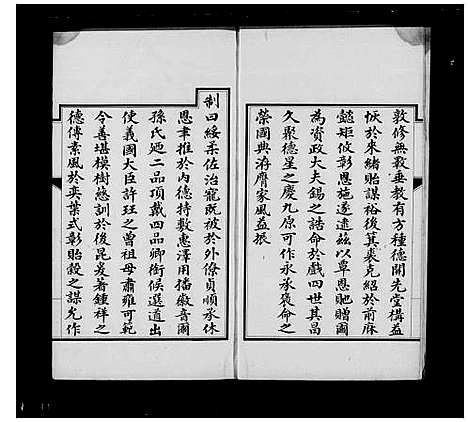 敦修無斁垂教有方種德開先堂構益
恢於來緒貽謀裕後箕裘克紹於前庥
懿矩攸彰恩施遂遠茲以覃恩貤贈爾
為資政大夫錫之誥命於戲四世其昌
久聚德星之慶九原可作永承褒命之
榮國典洊膺家風益振
制曰綏柔佐治寵既被於外僚貞順承休
恩聿推於內德特敷惠澤用播徽音爾
孫氏廼二品頂戴四品卿銜候選道出
使義國大臣許珏之曾祖母肅雍可範
令善堪模樹懿訓於後昆爰著鍾祥之
德傳素風於奕葉式彰貽穀之謀允作